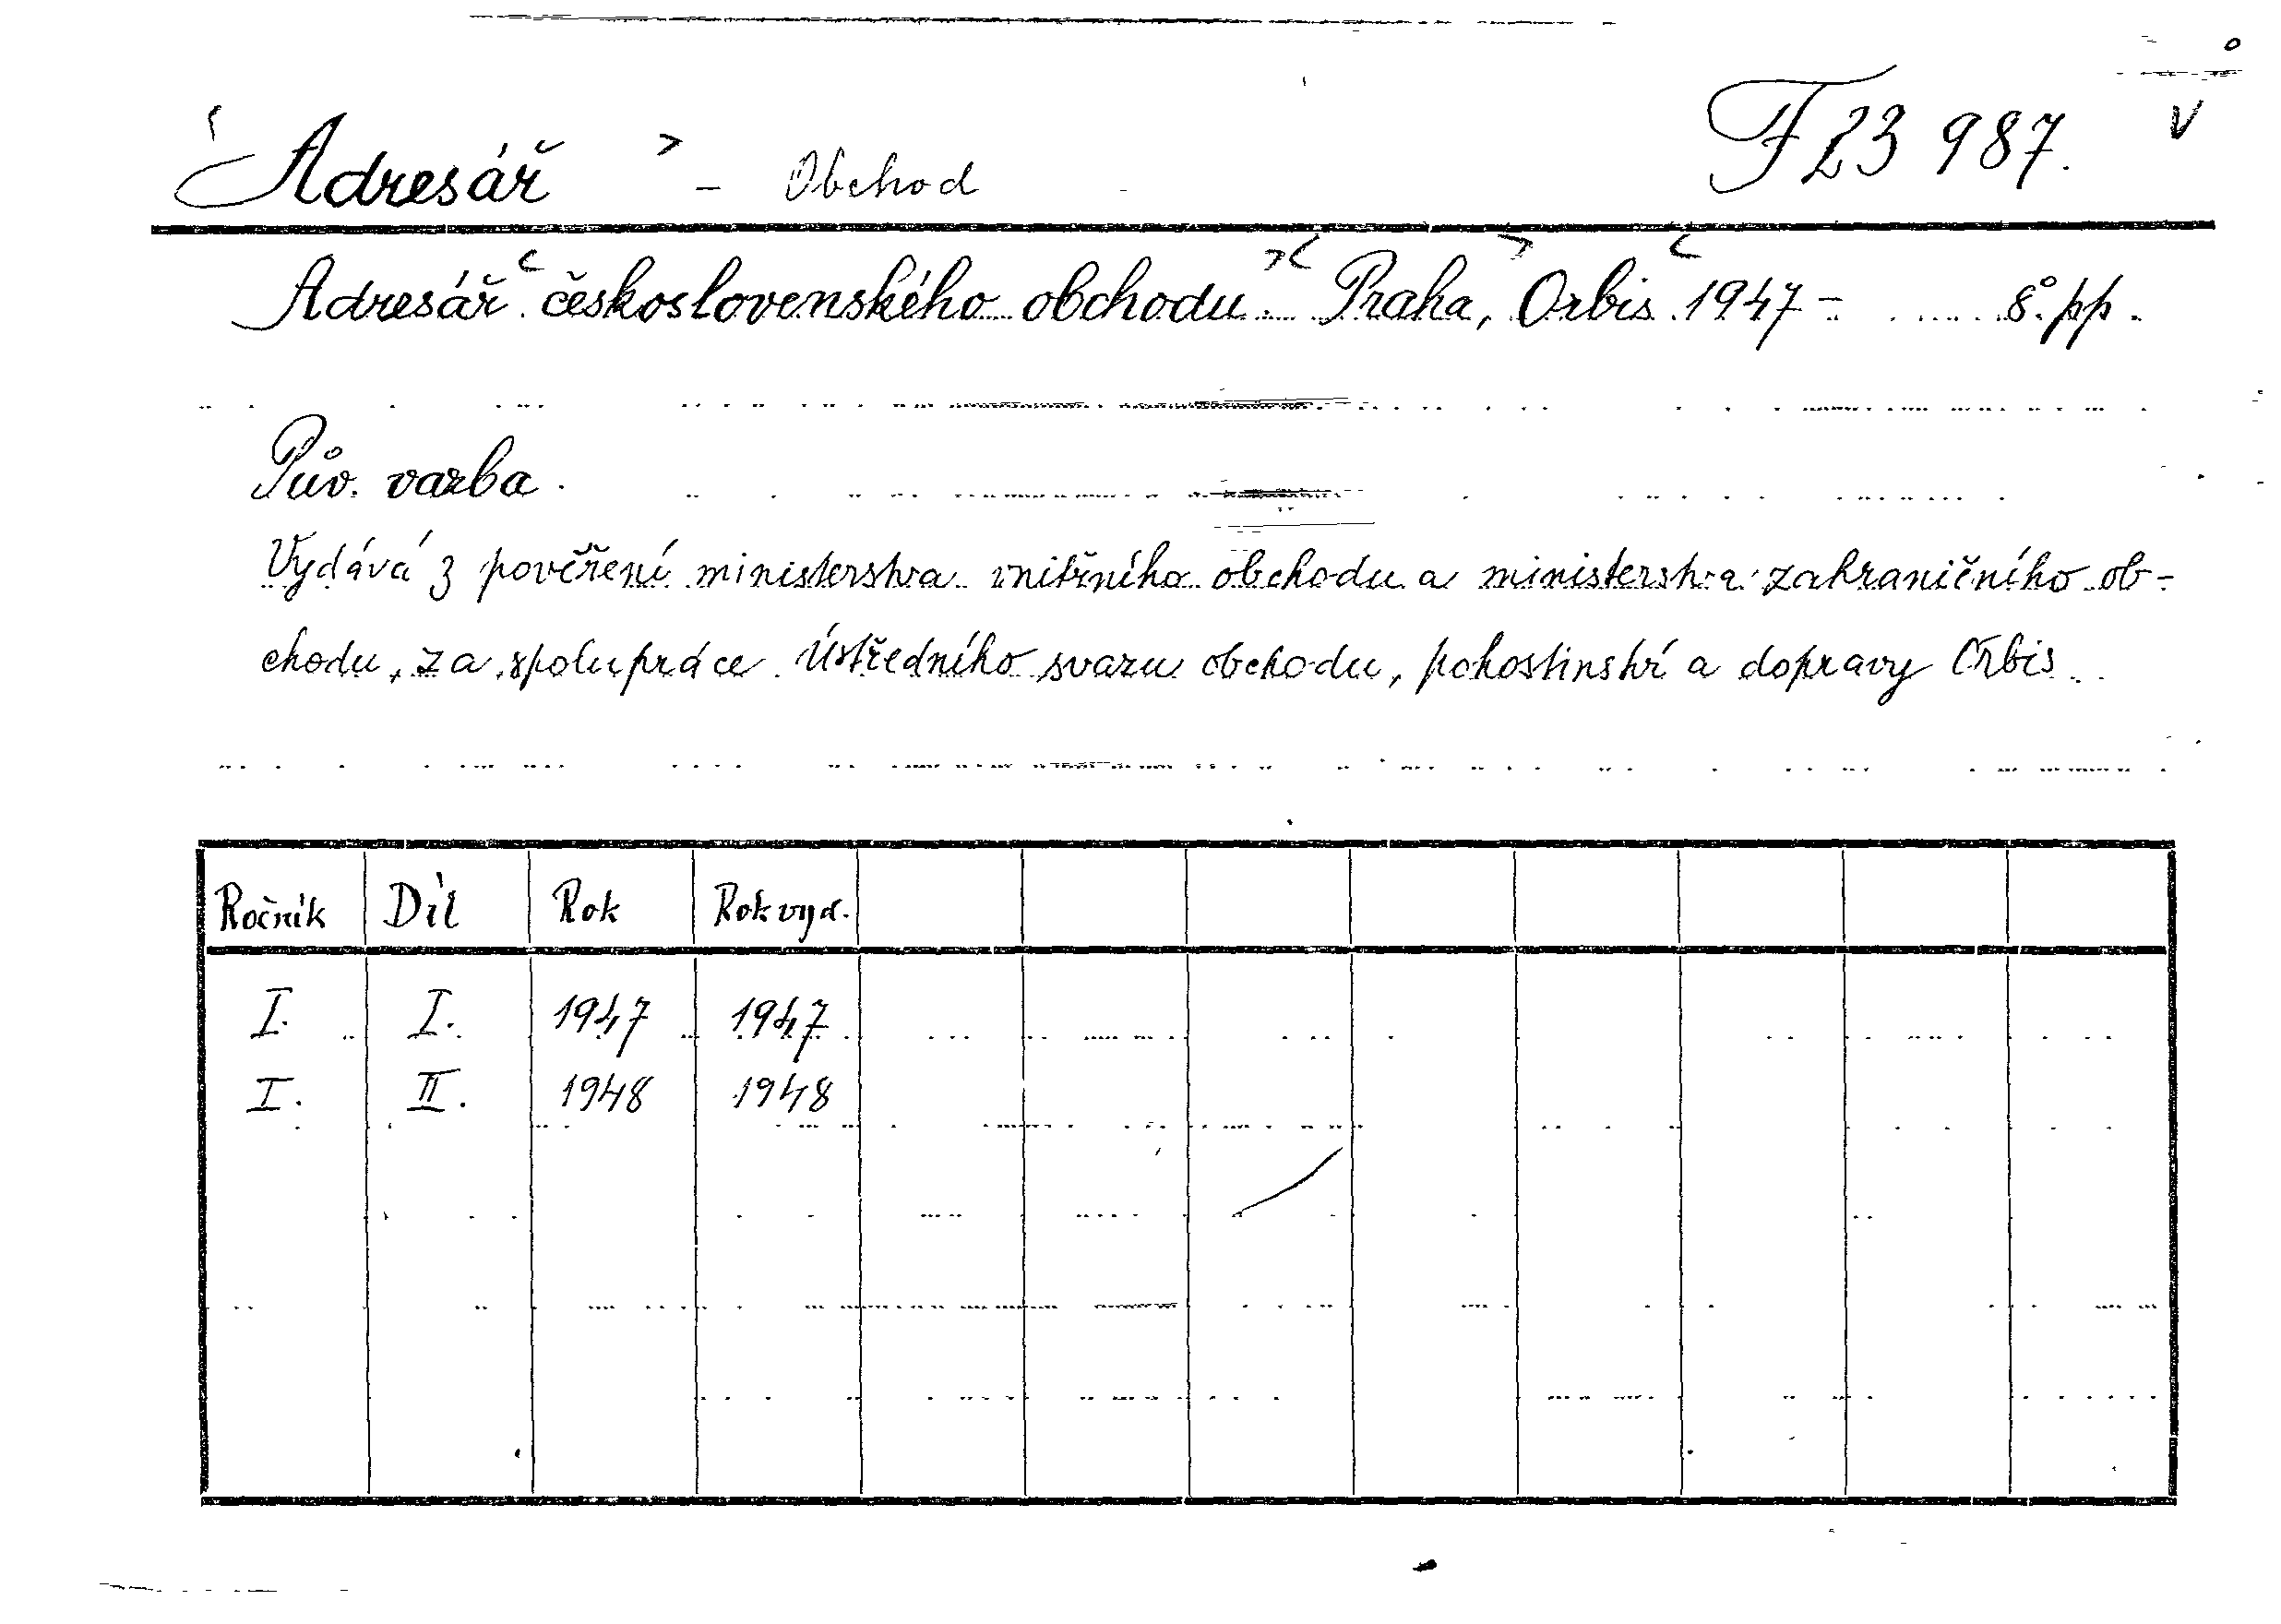 Adresář - Obchod F 23 987. V
Adresář československého obchodu. Praha, Orbis 1947- 8°. pp.
Pův. vazba.
Vydává z pověření ministerstva vnitřního obchodu a ministerstva zahraničního ob-
chodu, za spolupráce Ústředního svazu obchodu, pohostinství a dopravy Orbis.
Ročník Díl Rok Rok vyd.
I. I. 1947 1947
I. II. 1948 1948